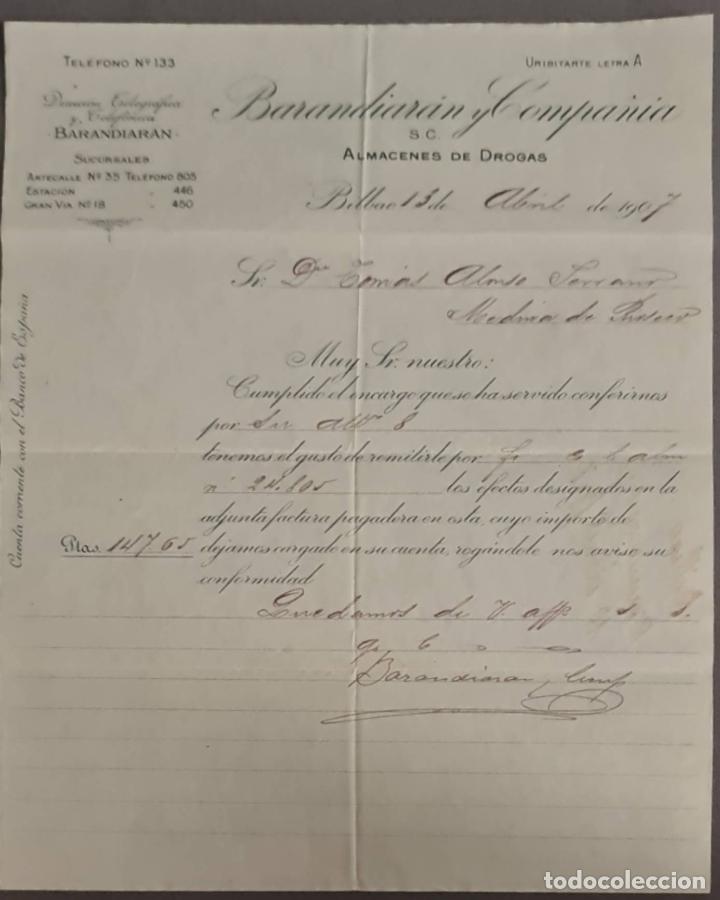 TELÉFONO Nº 133
URIBITARTE LETRA A
Dirección Telegráfica
y Telefónica
BARANDIARÁN
SUCURSALES
ARTECALLE Nº 35 TELÉFONO 805
ESTACIÓN " 446
GRAN VIA Nº 18 " 450
Barandiarán y Compañia
S.C.
ALMACENES DE DROGAS
Bilbao 13 de Abril de 1907
Sr. Dn Tomás Alonso Serrano
Medina de Rioseco
Muy Sr. nuestro:
Cumplido el encargo que se ha servido conferirnos
por su 8
tenemos el gusto de remitirle por
nº 24.805 los efectos designados en la
adjunta factura pagadera en esta, cuyo importe de
Ptas. 147.65 dejamos cargado en su cuenta, rogándole nos avise su
conformidad
Quedamos de V. aff s. s.
q. b
Barandiaran y Comp
Cuenta corriente con el Banco de España
todocoleccion.net